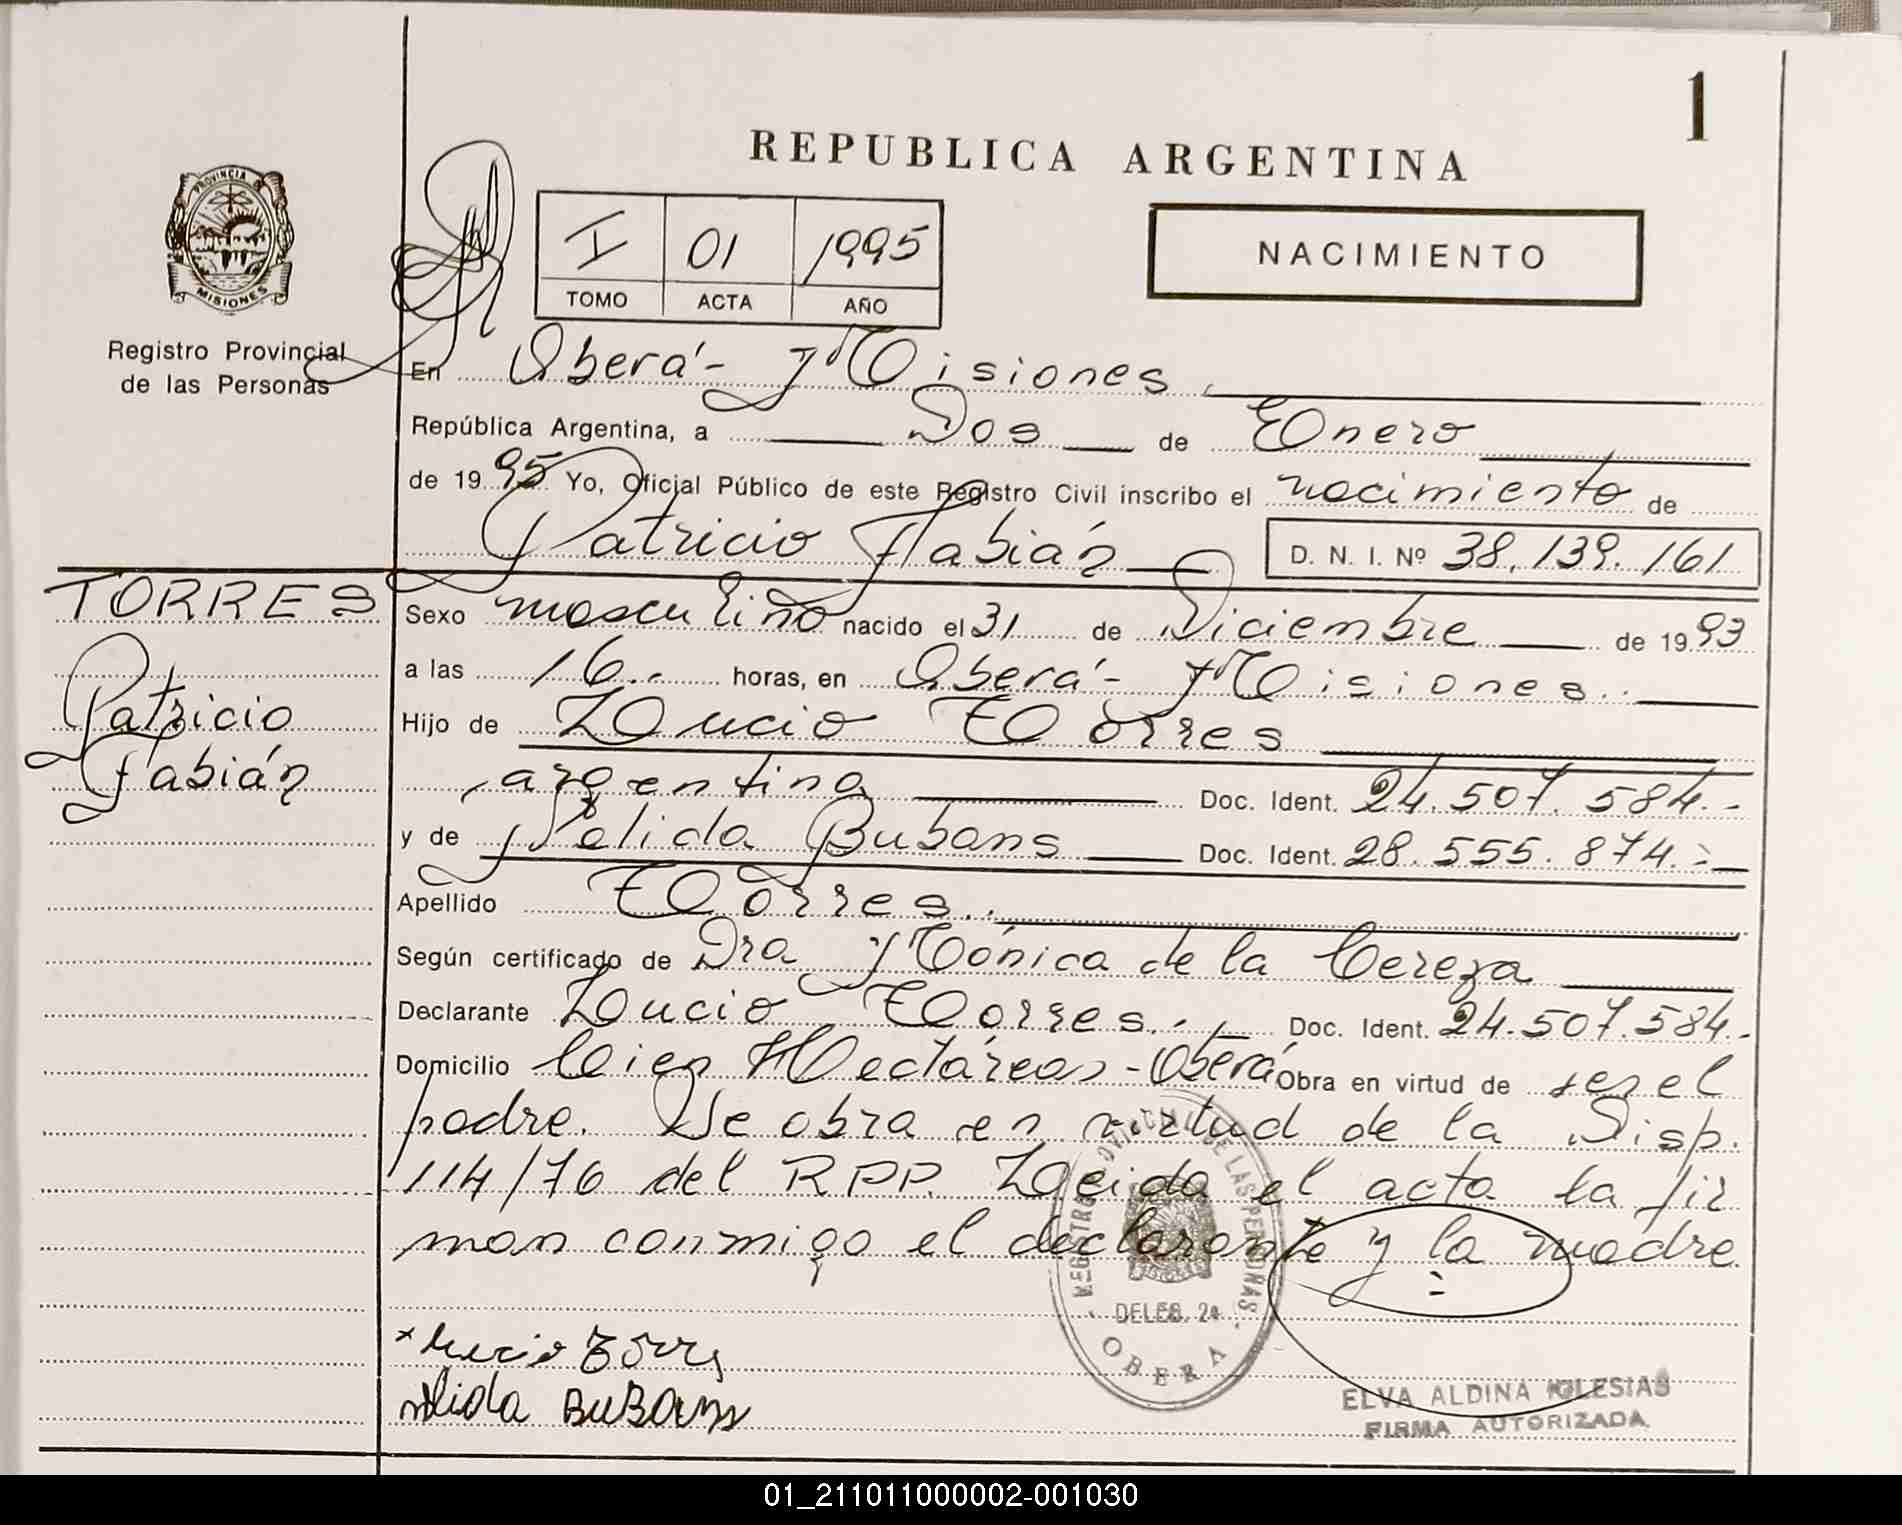 1
REPUBLICA ARGENTINA
PROVINCIA DE
MISIONES
Registro Provincial
de las Personas
I 01 1995
TOMO ACTA AÑO
NACIMIENTO
En Oberá - Misiones
República Argentina, a Dos de Enero
de 1995 Yo, Oficial Público de este Registro Civil inscribo el nacimiento de
Patricio Fabián D. N. I. Nº 38.139.161
TORRES
Patricio
Fabián
Sexo masculino nacido el 31 de Diciembre de 1993
a las 16.. horas, en Oberá - Misiones..
Hijo de Lucio Torres
, argentina Doc. Ident. 24.507.584.-
y de Nélida Bubans Doc. Ident. 28.555.874.-
Apellido Torres..
Según certificado de Dra Mónica de la Cereza
Declarante Lucio Torres.. Doc. Ident. 24.507.584.-
Domicilio Cien Hectáreas - Oberá Obra en virtud de ser el
padre. Se obra en virtud de la Disp.
114/76 del RPP. Leida el acta la fir
man conmigo el declarante y la madre.
REGISTRO PROVINCIAL DE LAS PERSONAS
DELEG. 2a
OBERA
x Lucio Torres
nelida BuBans
ELVA ALDINA IGLESIAS
FIRMA AUTORIZADA
01_211011000002-001030